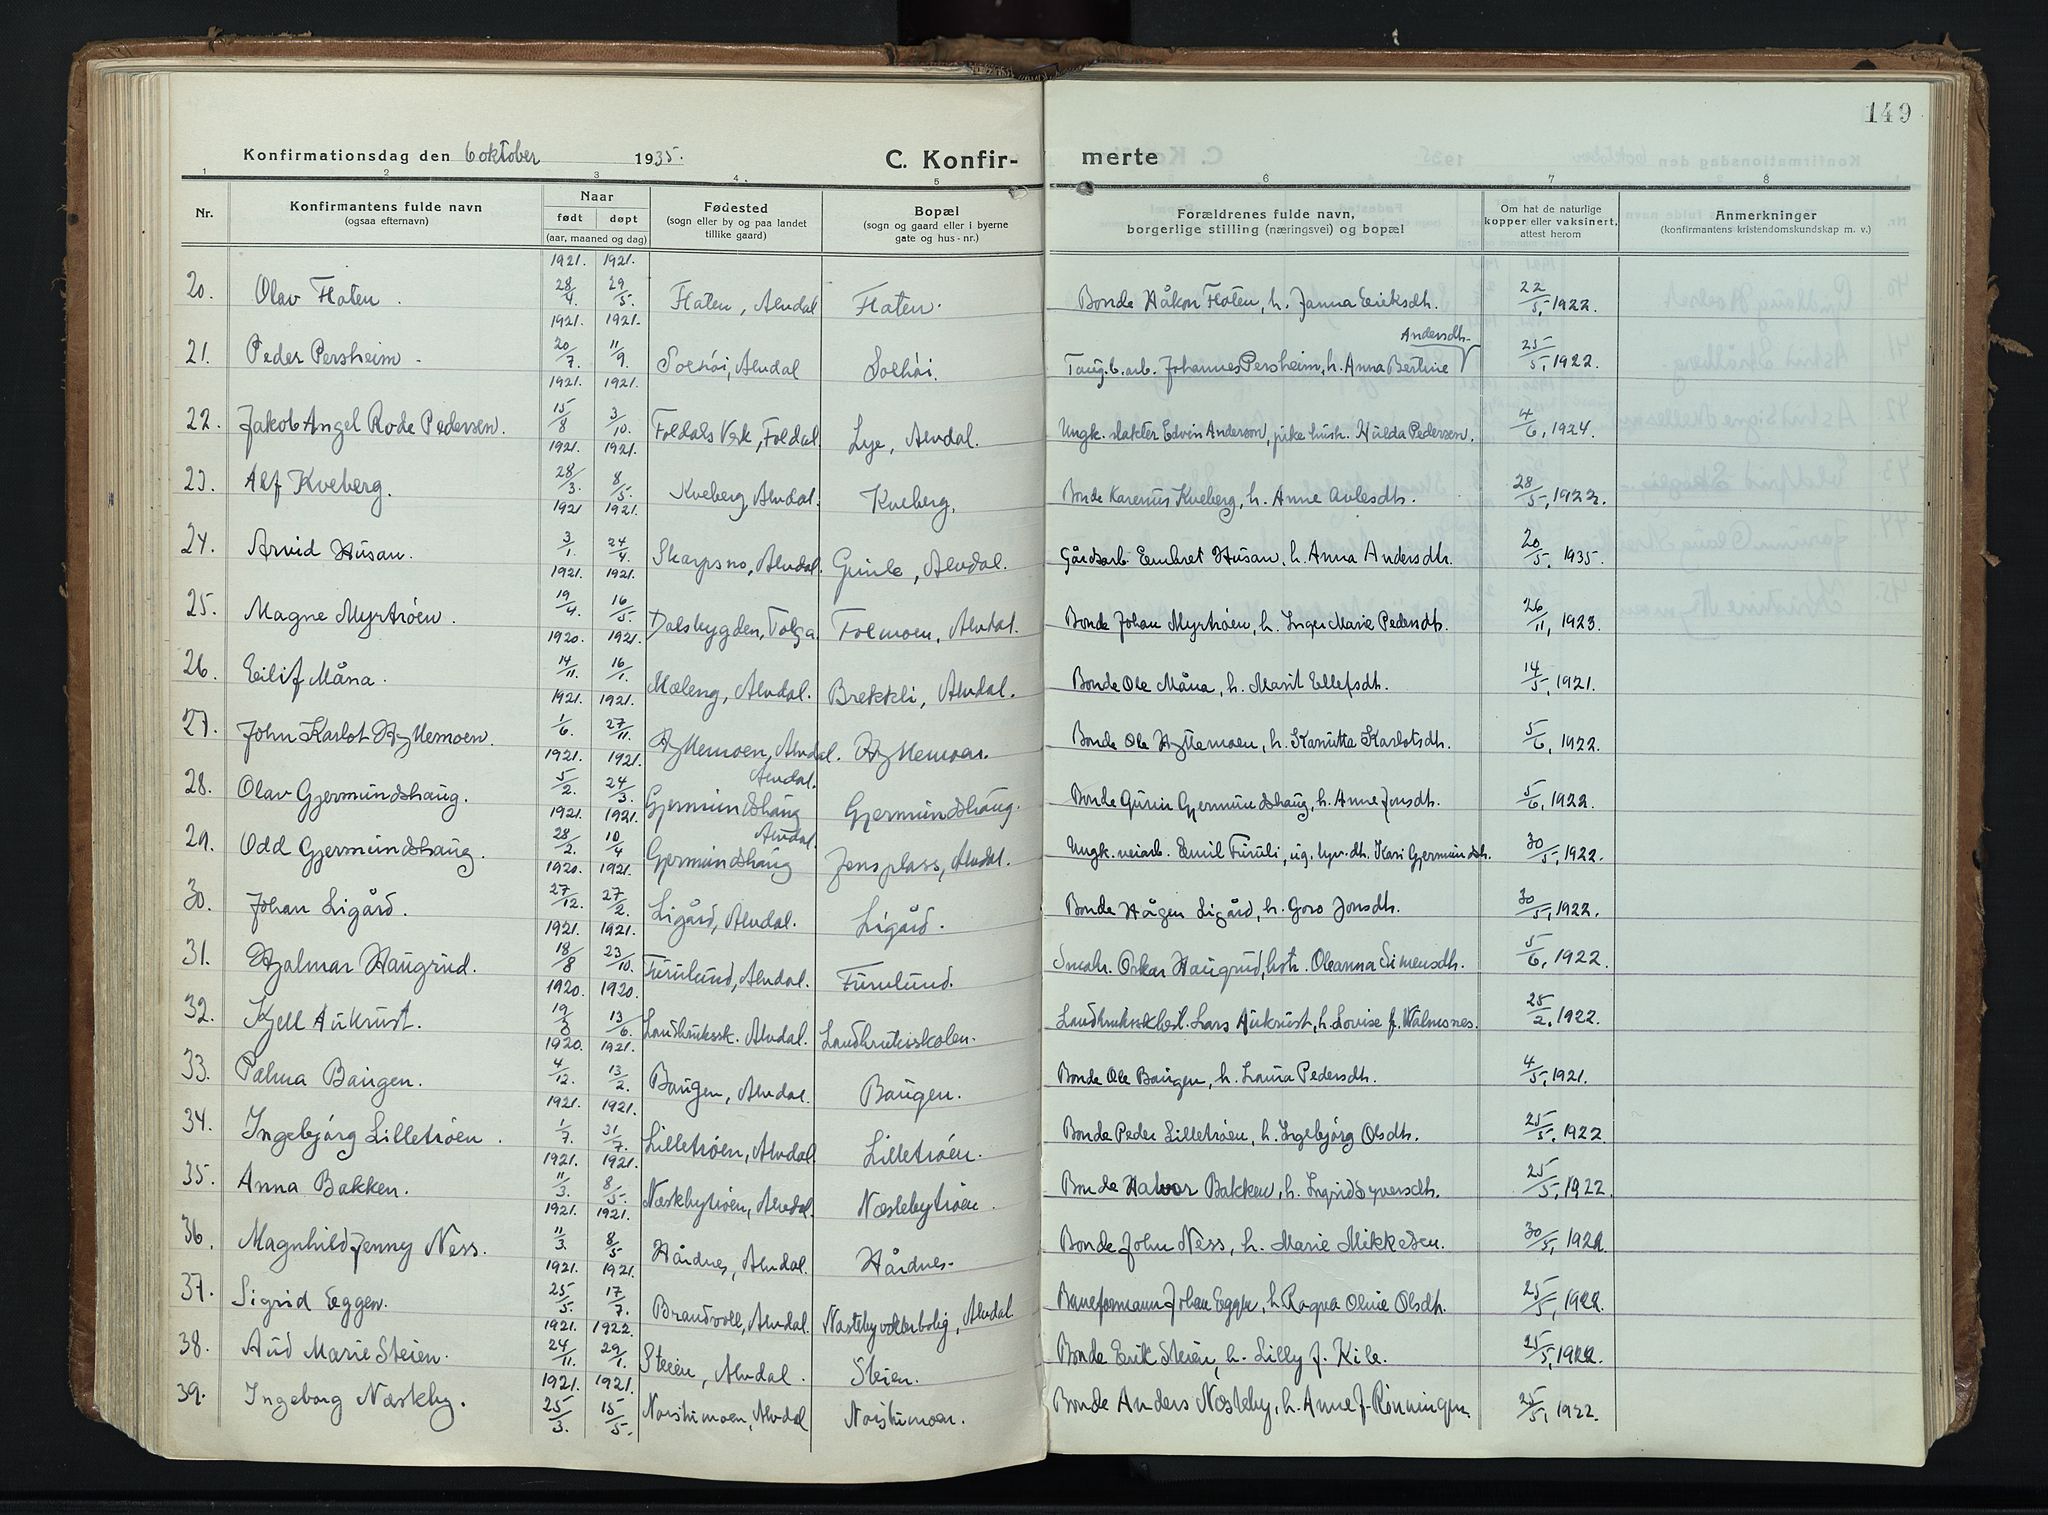 149
Konfirmationsdag den 6 oktober 1935. C. Konfir- merte
1 2 3 4. 5 6 7 8
Nr. Konfirmantens fulde navn (ogsaa efternavn) Naar født døpt (aar, maaned og dag) Fødested (sogn eller by og paa landet tillike gaard) Bopæl (sogn og gaard eller i byerne gate og hus-nr.) Forældrenes fulde navn, borgerlige stilling (næringsvei) og bopæl Om hat de naturlige kopper eller vaksinert, attest herom Anmerkninger (konfirmantens kristendomskundskap m. v.)
1921. 1921.
20. Olav Floten. 28/4. 29/5. Floten, Alvdal Floten. Bonde Håkon Floten, h. Janna Eriksdh. 22/5, 1922.
1921. 1921.
Andersdh.
21. Peder Persheim. 20/7. 11/9. Solhøi, Alvdal Solhøi. Taug.b.arb. Johannes Persheim, h. Anna Bertine 25/5, 1922.
1921. 1921.
22. Jakob Angel Rode Pedersen. 15/8 3/10. Foldals Verk, Foldal Lye, Alvdal. Ungk. slakter Edvin Anderson, pike hush. Hulda Pedersen. 4/6, 1924.
1921. 1921.
23. Alf Kveberg. 28/3. 8/5. Kveberg, Alvdal. Kveberg. Bonde Karenus Kveberg, h. Anne Avlesdh. 28/5, 1922.
1921 1921.
24. Arvid Husan. 3/1. 24/4. Skarpsno, Alvdal. Grinle, Alvdal. Gårdsarb. Embret Husan, h. Anna Andersdh. 20/5, 1935.
1921. 1921.
25. Magne Myrtrøen. 19/4. 16/5. Dalsbygden, Tolga. Tolmoen, Alvdal. Bonde Johan Myrtrøen, h. Inger Marie Pedersdh. 26/11, 1923.
1920. 1921.
26. Eilif Måna. 14/11. 16/1. Mæleng, Alvdal. Brekkli, Alvdal. Bonde Ole Måna, h. Marit Ellefsdh. 14/5, 1921.
1921. 1921.
27. John Karlot Hyttemoen. 1/6. 27/11. Hyttemoen, Alvdal. Hyttemoen. Bonde Ole Hyttemoen, h. Kanutta Karlotsdh. 5/6, 1922.
1921. 1921. Alvdal.
28. Olav Gjermundshaug. 5/2. 24/3. Gjermundshaug Gjermundshaug. Bonde Gunn Gjermundshaug, h. Anne Jonsdh. 5/6, 1922.
1921. 1921. Alvdal.
29. Odd Gjermundshaug. 28/2. 10/4 Gjermundshaug Jensplass, Alvdal. Ungk. veiarb. Emil Furuli, ug. hjv. dh. Kari Gjermundsh. 30/5, 1922.
1920. 1921.
30. Johan Ligård. 27/12. 27/2. Ligård, Alvdal. Ligård. Bonde Hågen Ligård, h. Goro Jonsdh. 30/5, 1922.
1921. 1921.
31. Hjalmar Haugrud. 18/8 23/10. Furulund, Alvdal. Furulund. Småbr. Oskar Haugrud, hstr. Oleanna Simensdh. 5/6, 1922.
1920. 1920.
32. Kjell Aukrust. 19/3 13/6. Landbrukssk. Alvdal. Landbruksskolen. Landbruksskbest. Lars Aukrust, h. Lovise f. Walmsnes. 25/2, 1922.
1920. 1921.
33. Palma Baugen. 4/12. 13/2. Baugen, Alvdal. Baugen. Bonde Ole Baugen, h. Laura Pedersdh. 4/5, 1921.
1921. 1921.
34. Ingebjørg Lilletrøen. 1/7. 31/7. Lilletrøen, Alvdal. Lilletrøen. Bonde Peder Lilletrøen, h. Ingebjørg Olsdh. 25/5, 1922
1921. 1921.
35. Anna Bakken. 11/3. 8/5. Næstebytrøen, Alvdal. Næstebytrøen. Bonde Halvor Bakken, h. Ingrid Syversdh. 25/5, 1922
1921. 1921.
36. Magnhild Jenny Ness. 11/3. 8/5 Hårdnes, Alvdal. Hårdnes. Bonde John Ness, h. Marie Mikkelsen. 30/5, 1922.
1921. 1921.
37. Sigrid Eggen. 25/5. 17/7. Brandvoll, Alvdal. Næstebyvokterbolig, Alvdal Baneformann Johan Eggen, h. Ragna Oline Olsdh. 25/5, 1922.
1921. 1922.
38. Aud Marie Steien. 24/11. 29/1. Steien, Alvdal. Steien. Bonde Erik Steien, h. Lilly f. Kile. 25/5, 1922.
1921. 1921.
39. Ingeborg Næsteby. 25/3. 15/5. Norstumoen, Alvdal Norstumoen. Bonde Anders Næsteby, h. Anne f. Rønningen. 25/5, 1922.